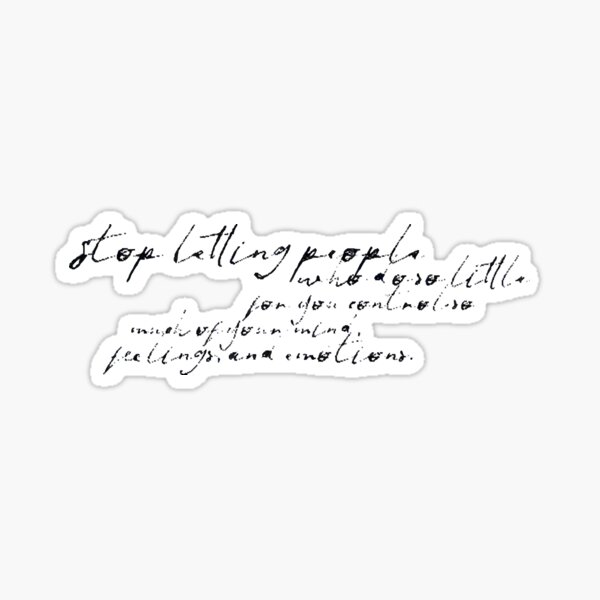 stop letting people
who do so little
for you control so
much of your mind,
feelings, and emotions.